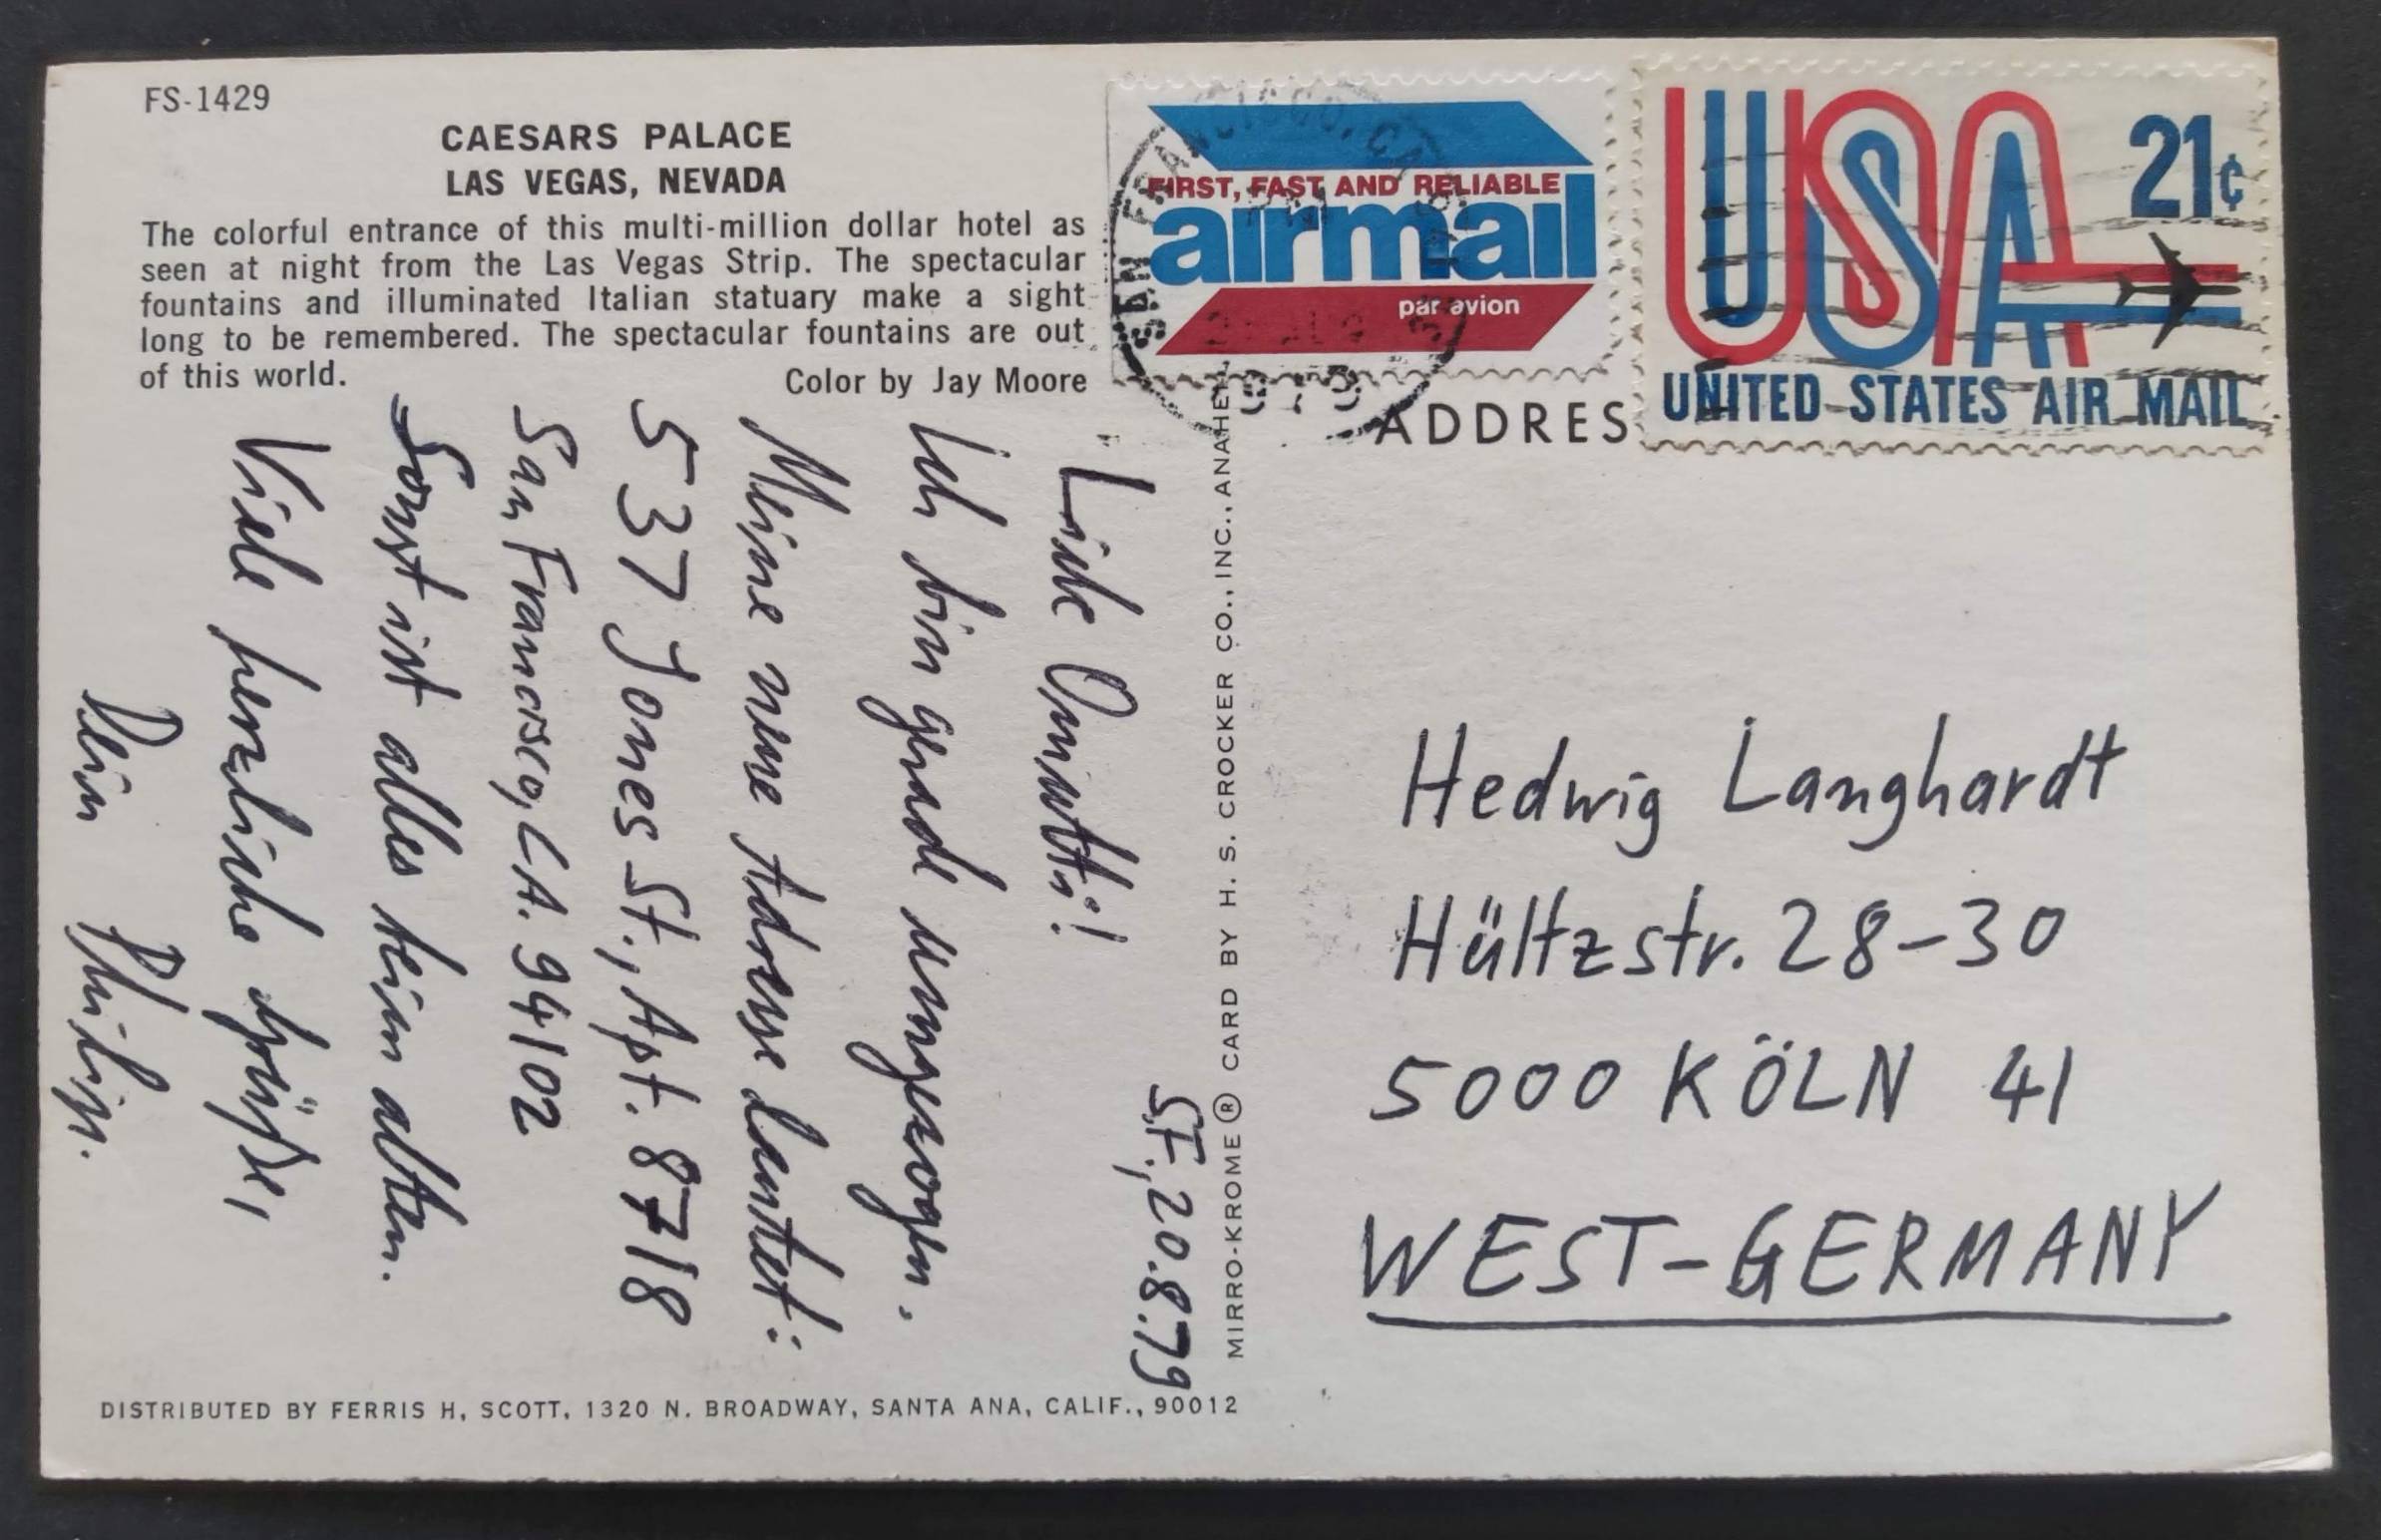 FS-1429
CAESARS PALACE
LAS VEGAS, NEVADA
The colorful entrance of this multi-million dollar hotel as
seen at night from the Las Vegas Strip. The spectacular
fountains and illuminated Italian statuary make a sight
long to be remembered. The spectacular fountains are out
of this world.
Color by Jay Moore
S.F., 20.8.79
Liebe Omutti!
Ich bin grade umgezogen.
Meine neue Adresse lautet:
537 Jones St., Apt. 8718
San Francisco, CA. 94102
Sonst ist alles beim alten.
Viele herzliche Grüße,
Dein Philip.
DISTRIBUTED BY FERRIS H, SCOTT, 1320 N. BROADWAY, SANTA ANA, CALIF., 90012
MIRRO-KROME ® CARD BY H. S. CROCKER CO., INC., ANAHE
SAN FRANCISCO, CA
PM
1979
FIRST, FAST AND RELIABLE
airmail
par avion
USA
21¢
UNITED STATES AIR MAIL
ADDRES
Hedwig Langhardt
Hültzstr. 28-30
5000 KÖLN 41
WEST-GERMANY